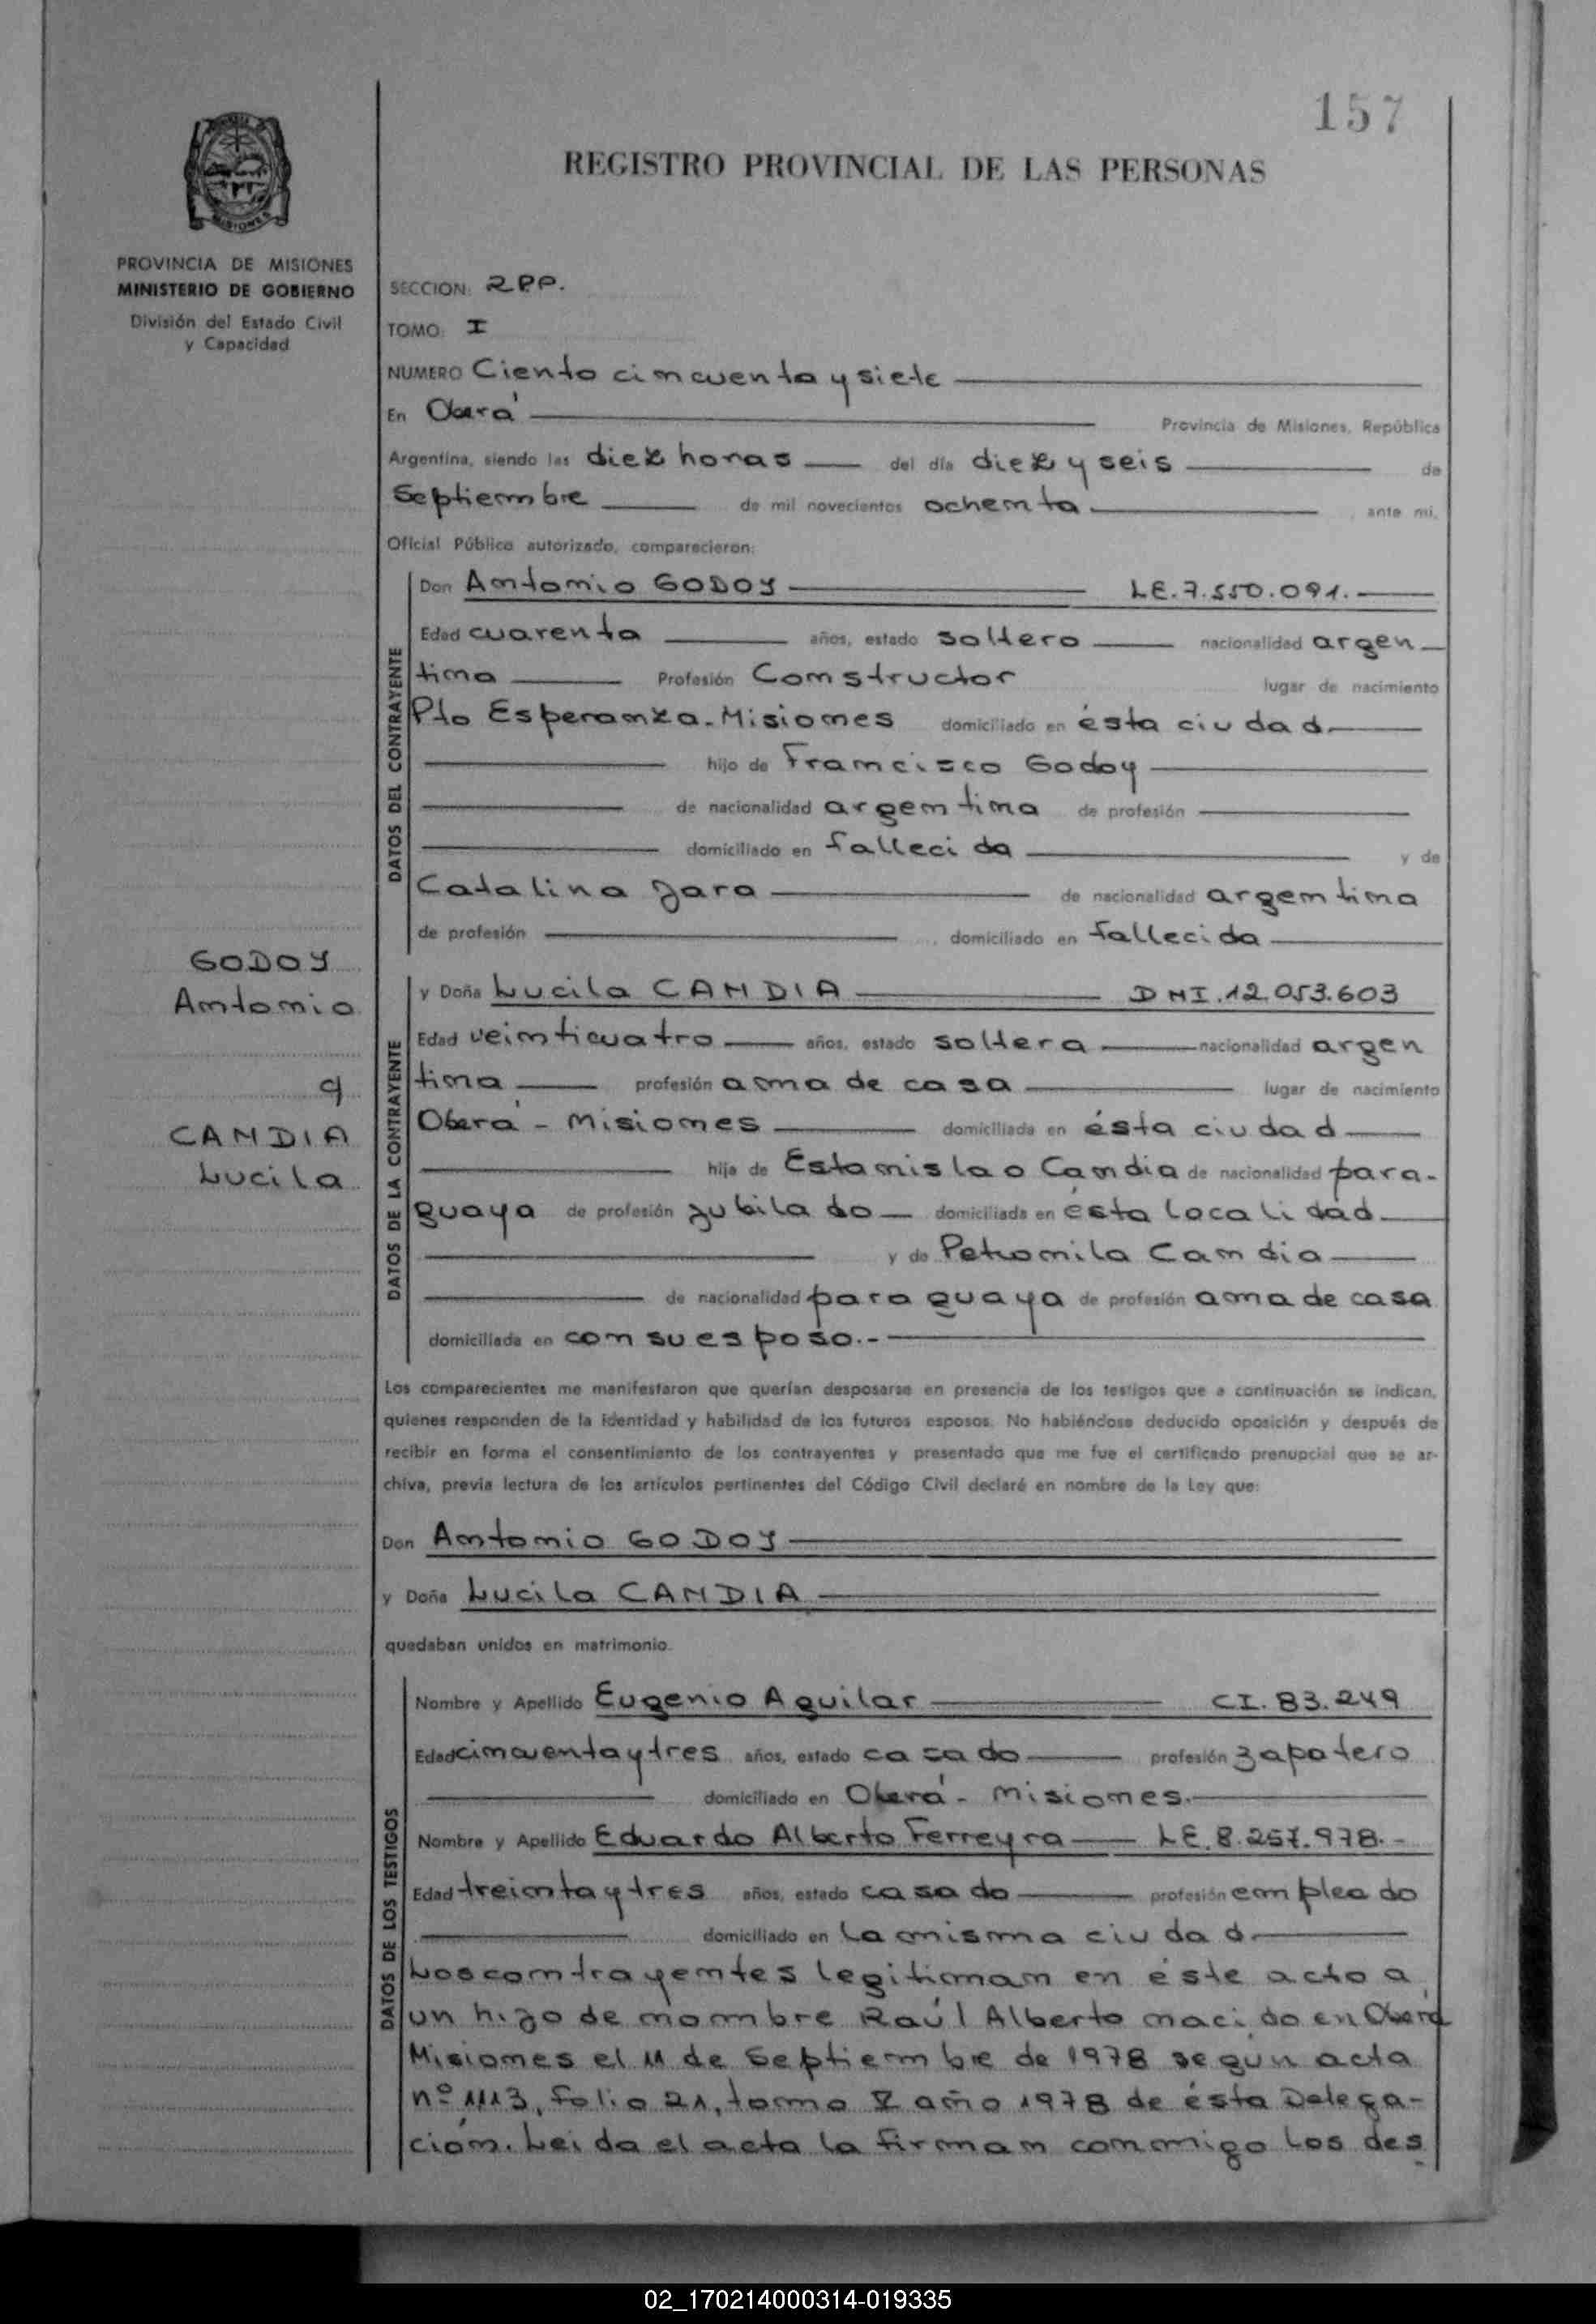 157
REGISTRO PROVINCIAL DE LAS PERSONAS
MISIONES
PROVINCIA DE MISIONES
MINISTERIO DE GOBIERNO
División del Estado Civil
y Capacidad
SECCION: RPP.
TOMO: I
NUMERO Ciento cincuenta y siete
En Oberá Provincia de Misiones, República
Argentina, siendo las diez horas del día diez y seis de
Septiembre de mil novecientos ochenta , ante mí,
Oficial Público autorizado, comparecieron:
DATOS DEL CONTRAYENTE
Don Antonio GODOY LE.7.550.091.
Edad cuarenta años, estado soltero nacionalidad argen
tina Profesión Constructor lugar de nacimiento
Pto Esperanza-Misiones domiciliado en ésta ciudad
hijo de Francisco Godoy
de nacionalidad argentina de profesión
domiciliado en fallecida y de
Catalina Jara de nacionalidad argentina
de profesión domiciliado en fallecida
GODOY
Antonio
y
CANDIA
Lucila
DATOS DE LA CONTRAYENTE
y Doña Lucila CANDIA DNI.12.053.603
Edad veinticuatro años, estado soltera nacionalidad argen
tina profesión ama de casa lugar de nacimiento
Oberá - Misiones domiciliada en ésta ciudad
hija de Estanislao Candia de nacionalidad para-
guaya de profesión jubilado domiciliada en ésta localidad
y de Petronila Candia
de nacionalidad paraguaya de profesión ama de casa
domiciliada en con su esposo.-
Los comparecientes me manifestaron que querían desposarse en presencia de los testigos que a continuación se indican,
quienes responden de la identidad y habilidad de los futuros esposos. No habiéndose deducido oposición y después de
recibir en forma el consentimiento de los contrayentes y presentado que me fue el certificado prenupcial que se ar-
chiva, previa lectura de los artículos pertinentes del Código Civil declaré en nombre de la Ley que:
Don Antonio GODOY
y Doña Lucila CANDIA
quedaban unidos en matrimonio.
DATOS DE LOS TESTIGOS
Nombre y Apellido Eugenio Aguilar CI. 83.249
Edad cincuenta y tres años, estado casado profesión zapatero
domiciliado en Oberá - Misiones.
Nombre y Apellido Eduardo Alberto Ferreyra LE. 8.257.978.-
Edad treinta y tres años, estado casado profesión empleado
domiciliado en La misma ciudad.
Los contrayentes legitiman en éste acto a
un hijo de nombre Raúl Alberto nacido en Oberá
Misiones el 11 de Septiembre de 1978 según acta
nº 1113, folio 21, tomo V año 1978 de ésta Delega-
ción. Leida el acta la firman conmigo los des
02_170214000314-019335